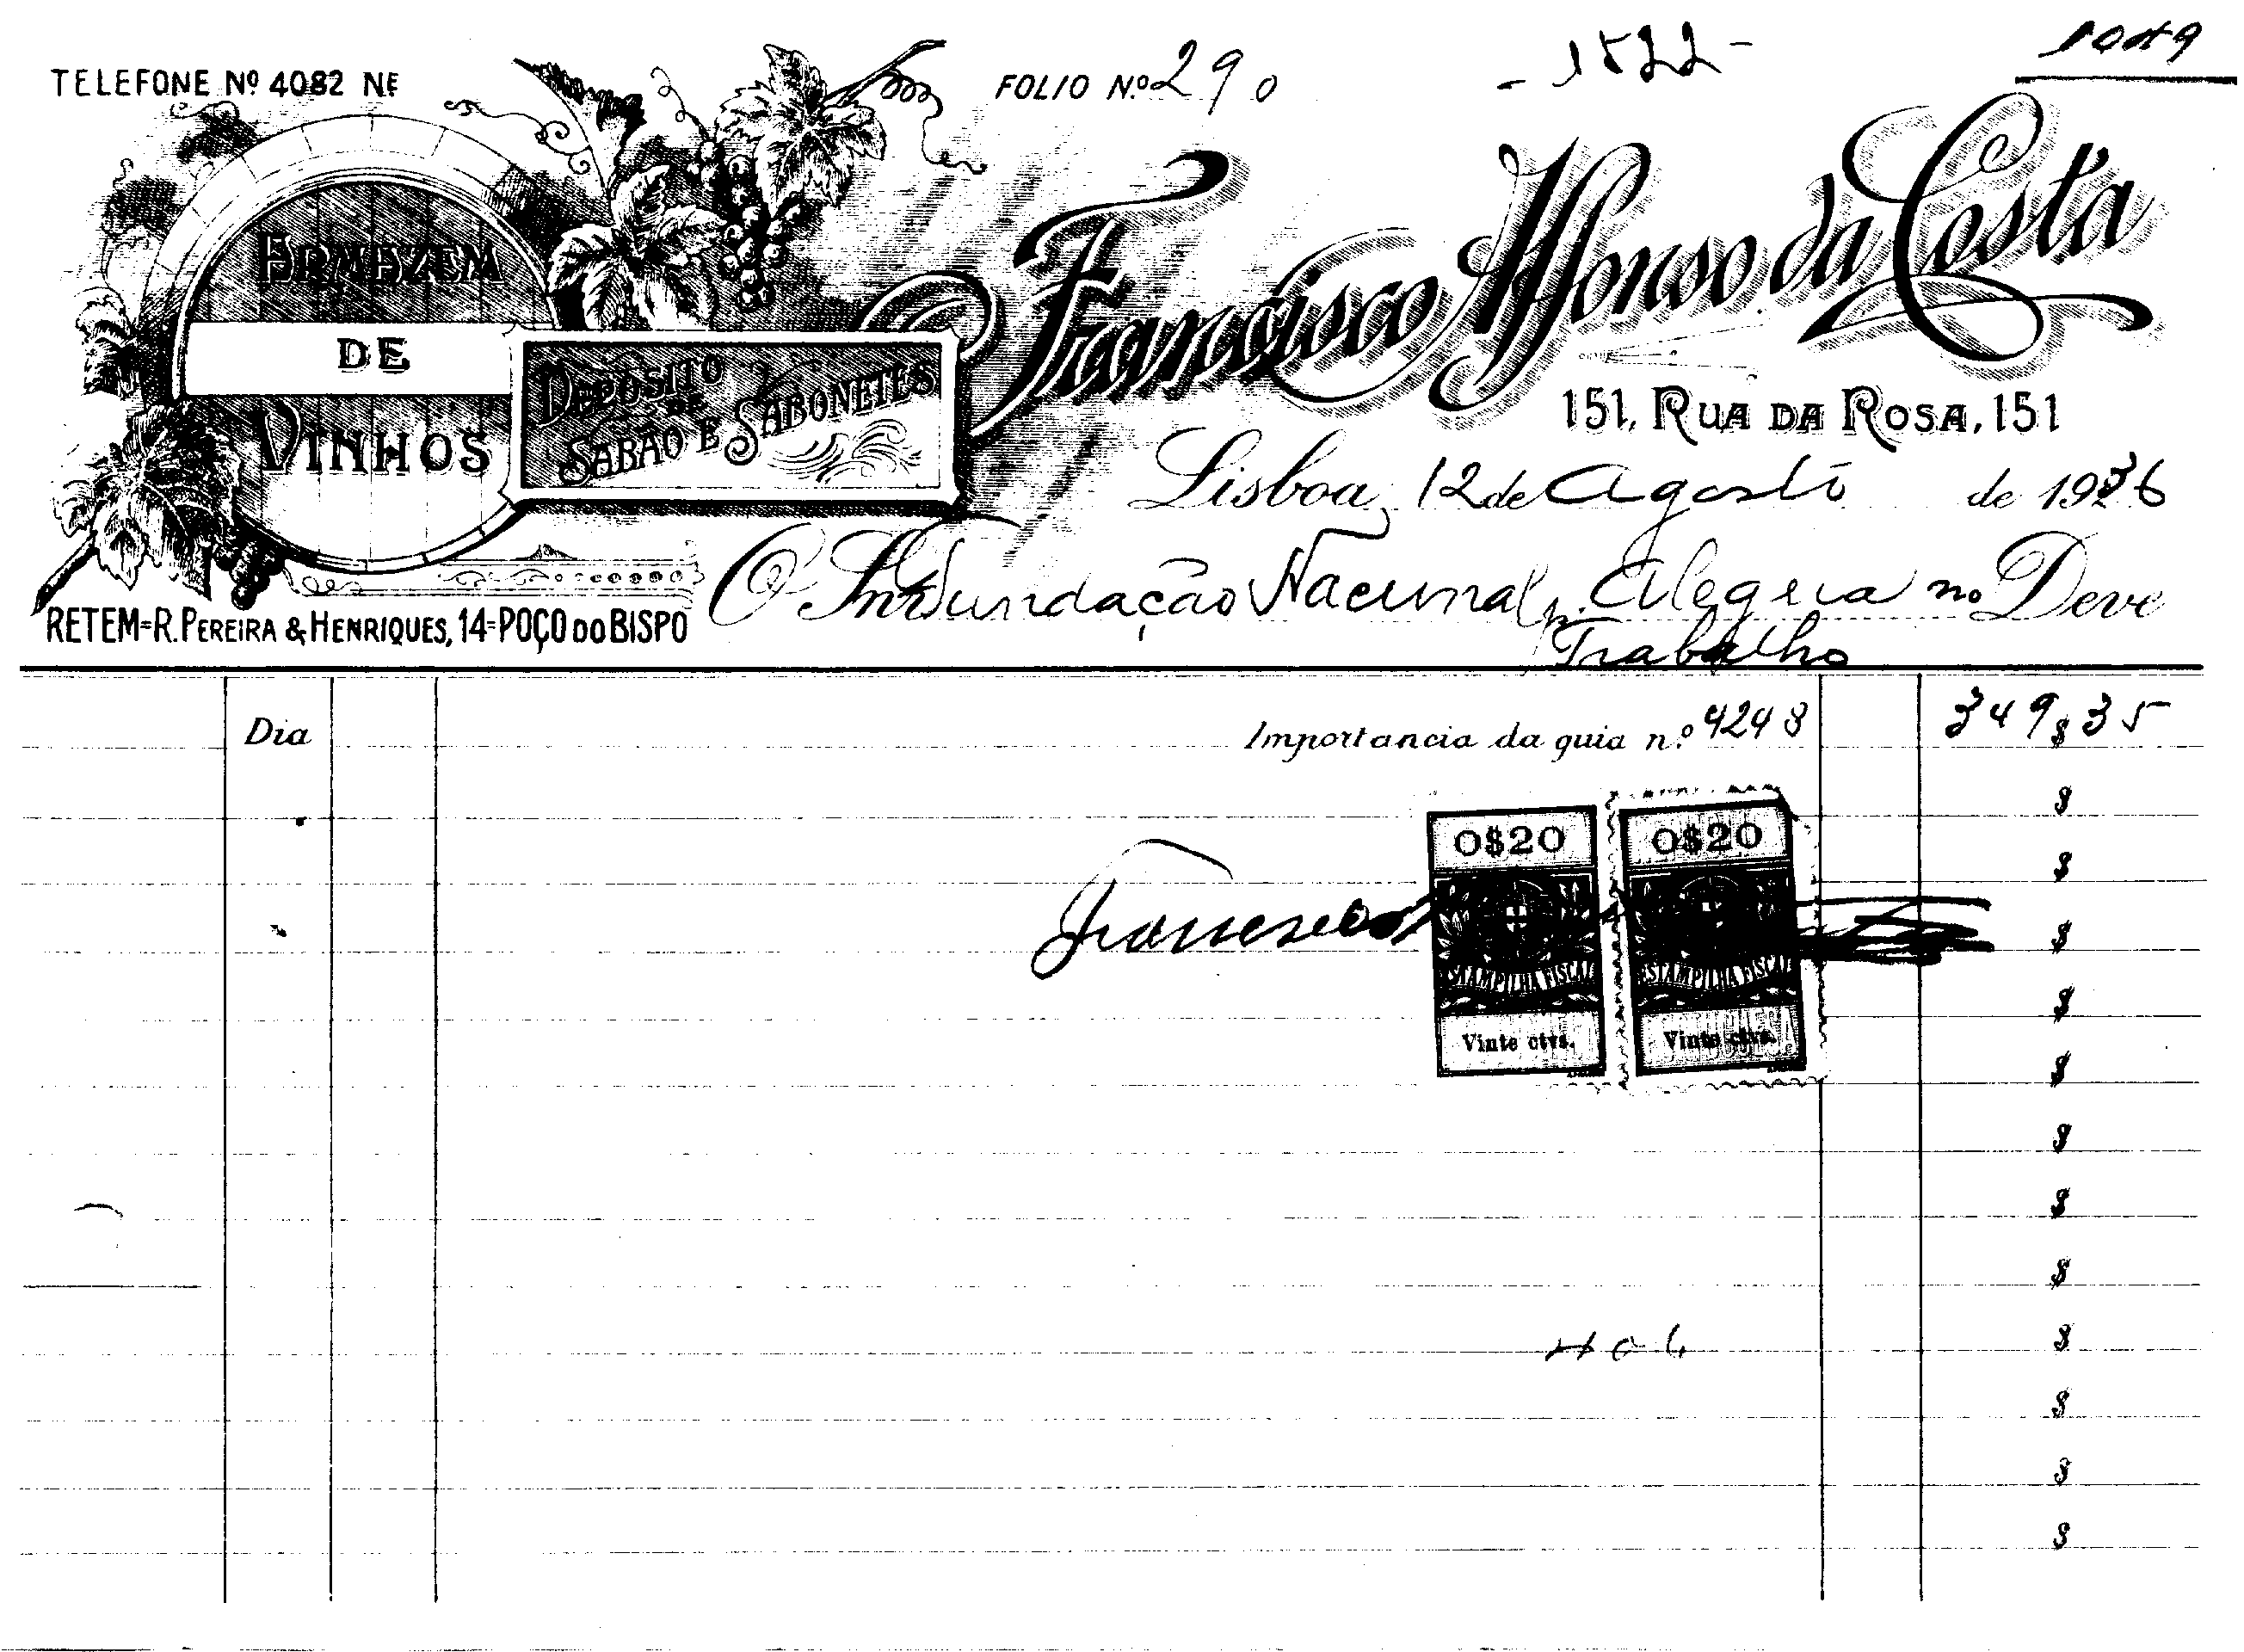 TELEFONE Nº 4082 NE
FOLIO N.º 290
- 1522 -
1049
ARMAZEM
DE
VINHOS
DEPOSITO
DE
SABÃO E SABONETES
Francisco Affonso da Costa
151, RUA DA ROSA, 151
Lisboa, 12 de Agosto de 1936
O Snr. Fundação Nacional p. Alegria no Deve
Trabalho
RETEM=R. PEREIRA & HENRIQUES, 14=POÇO DO BISPO
Dia
Importancia da guia n.º 4248
349$35
$
$
O$20
O$20
Francisco
$
ESTAMPILHA FISCAL
ESTAMPILHA FISCAL
$
Vinte ctvs.
Vinte ctvs.
$
$
$
$
$
$
$
$